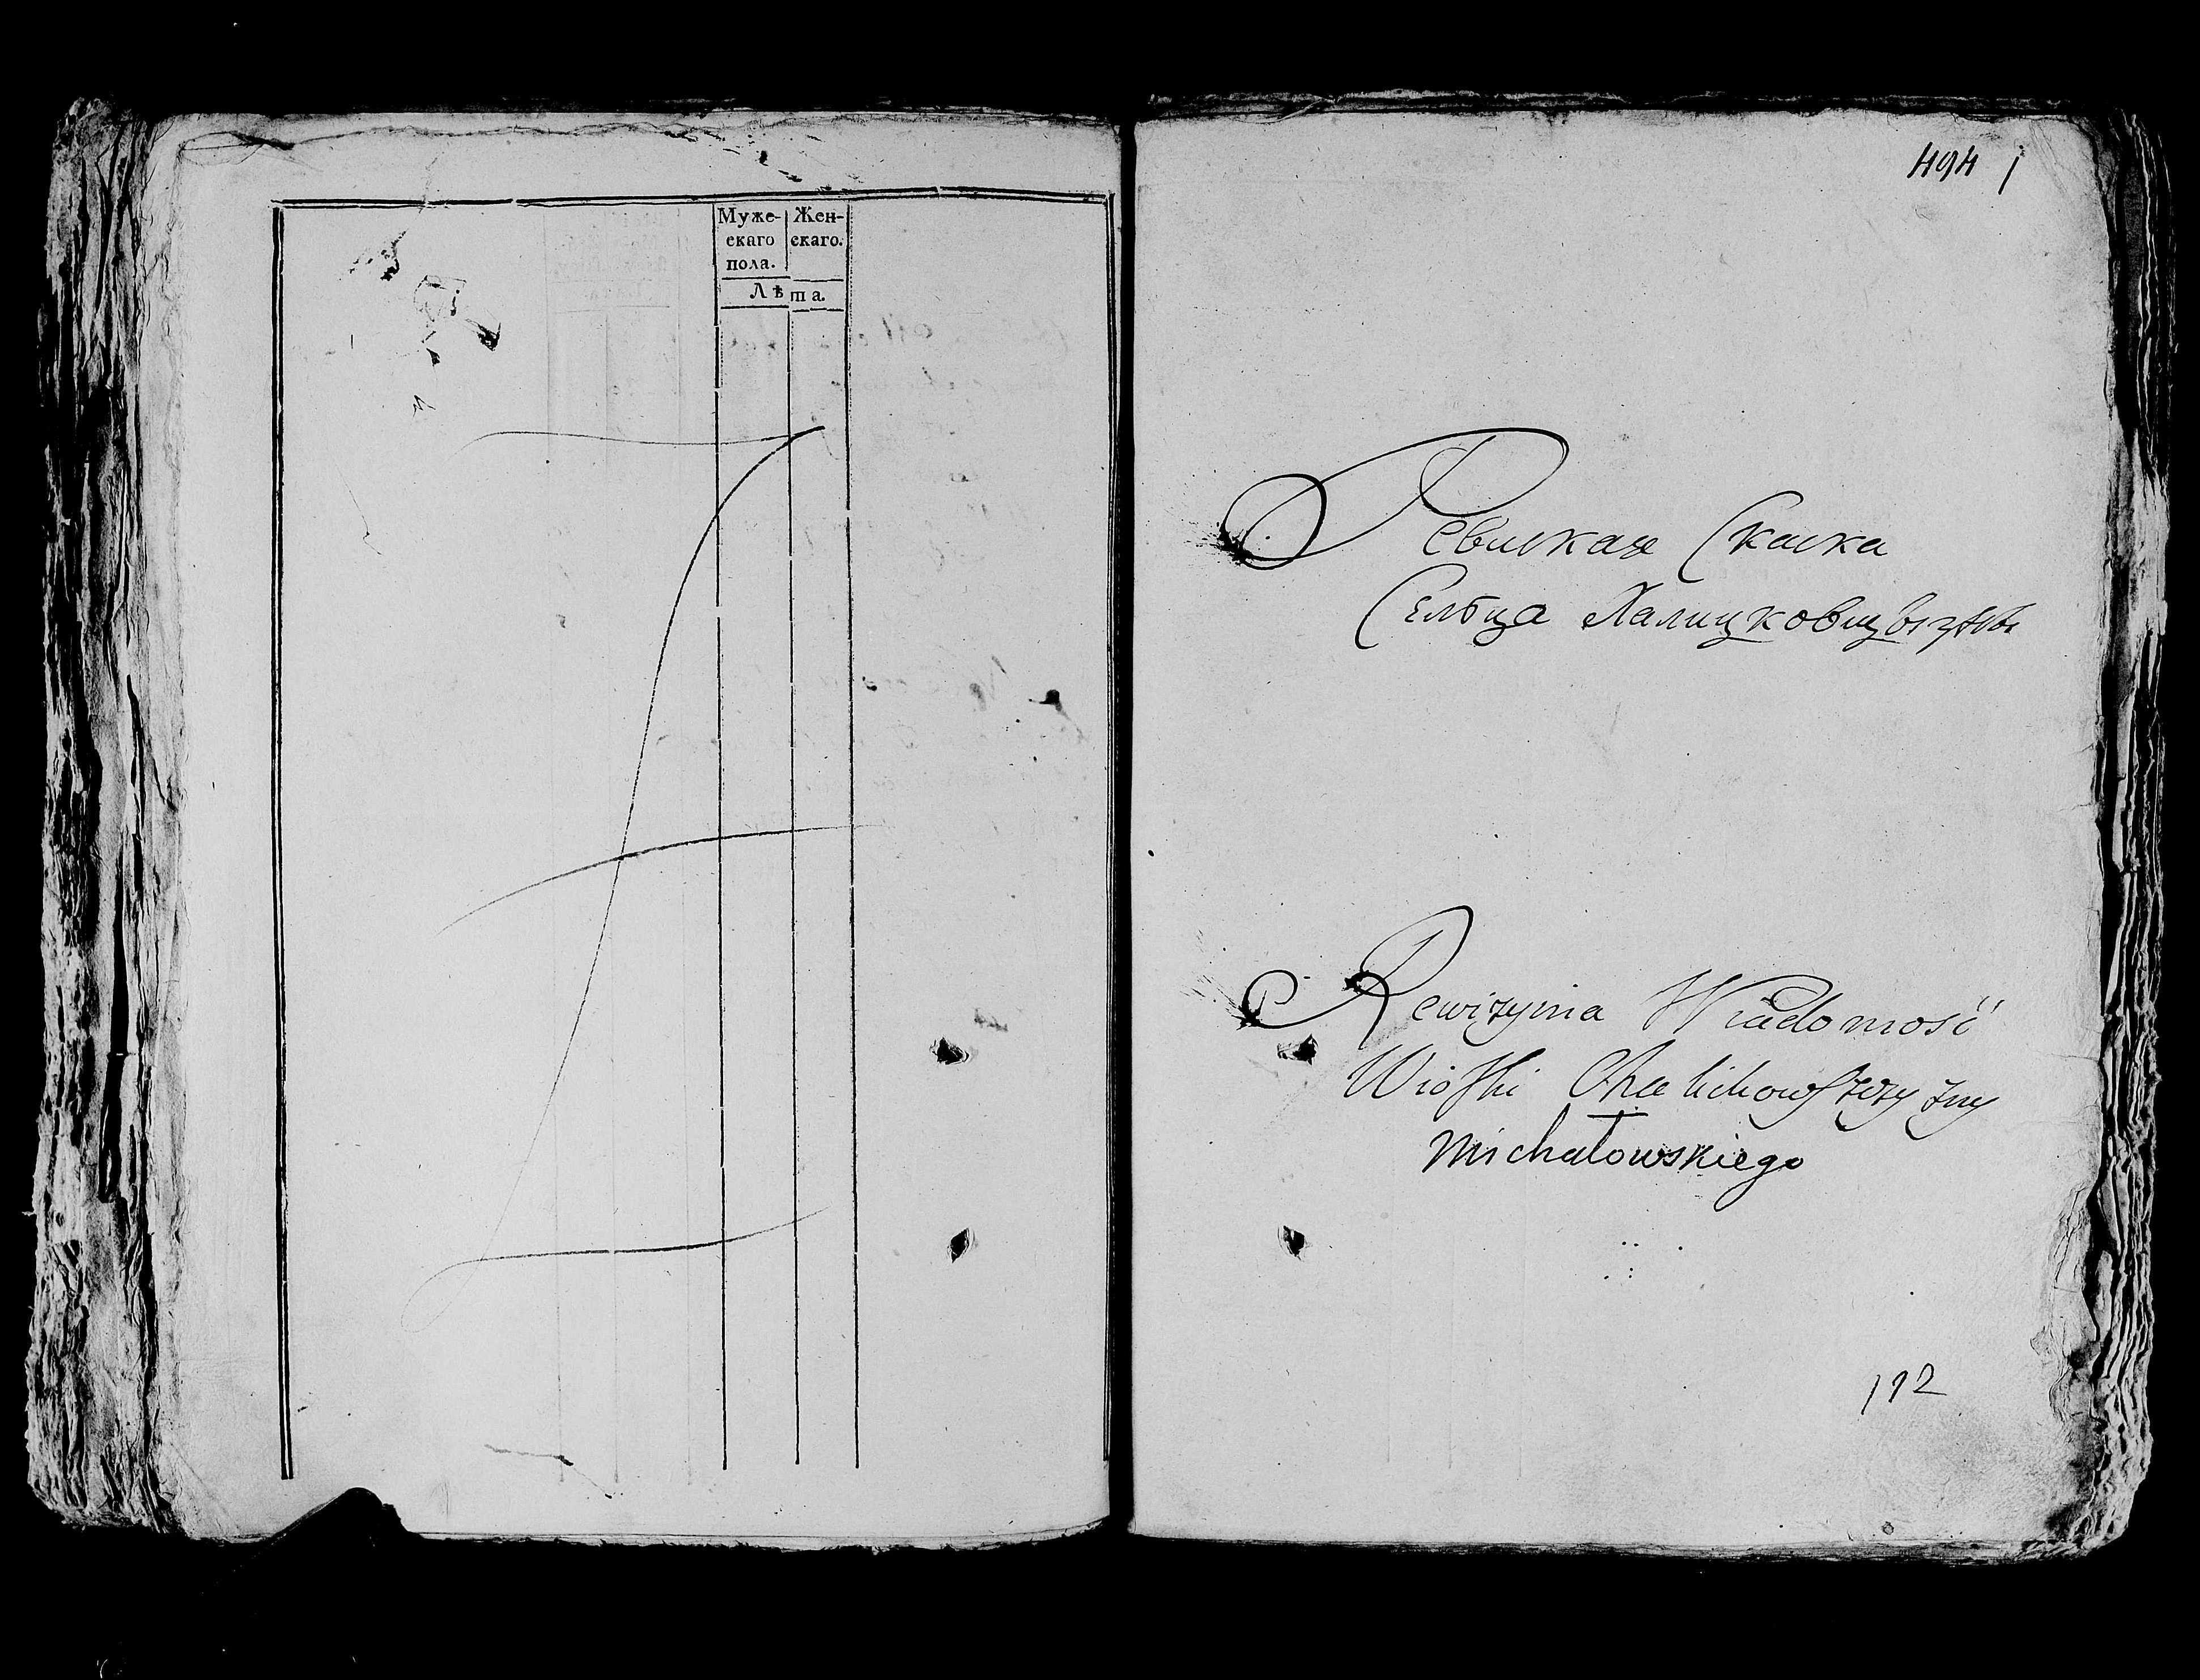 Муже-
скаго
пола.
Жен-
скаго.
Лѣта.
494
Ревиская Скаска
Селбца Халицковщызны
Rewizyina Wiadomość
Wioski Chalickowszczyzny
Michałowskiego
112